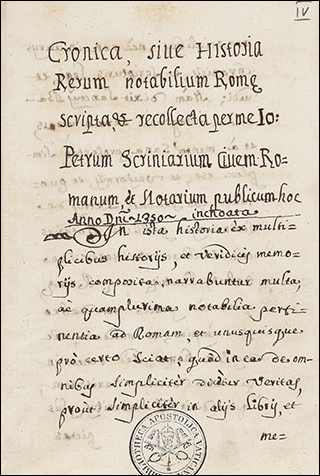 IV
Cronica, siue Historia
Rerum notabilium Romę
scripta, & recollecta per me Io:
Petrum Scriniarium Ciuem Ro-
manum, et Notarium publicum hoc
Anno Dñi 1350 inchoata
In ista historia ex multi-
plicibus historijs, et veridicis memo-
rijs composita, narrabuntur multa,
ac quamplurima notabilia perti-
nentia ad Romam, et unusquisque
pro certo sciat, quod in ea de om-
nibus simpliciter dicetur veritas,
prout simpliciter in alijs libris, et
me=
BIBLIOTHECA APOSTOLICA VATICANA